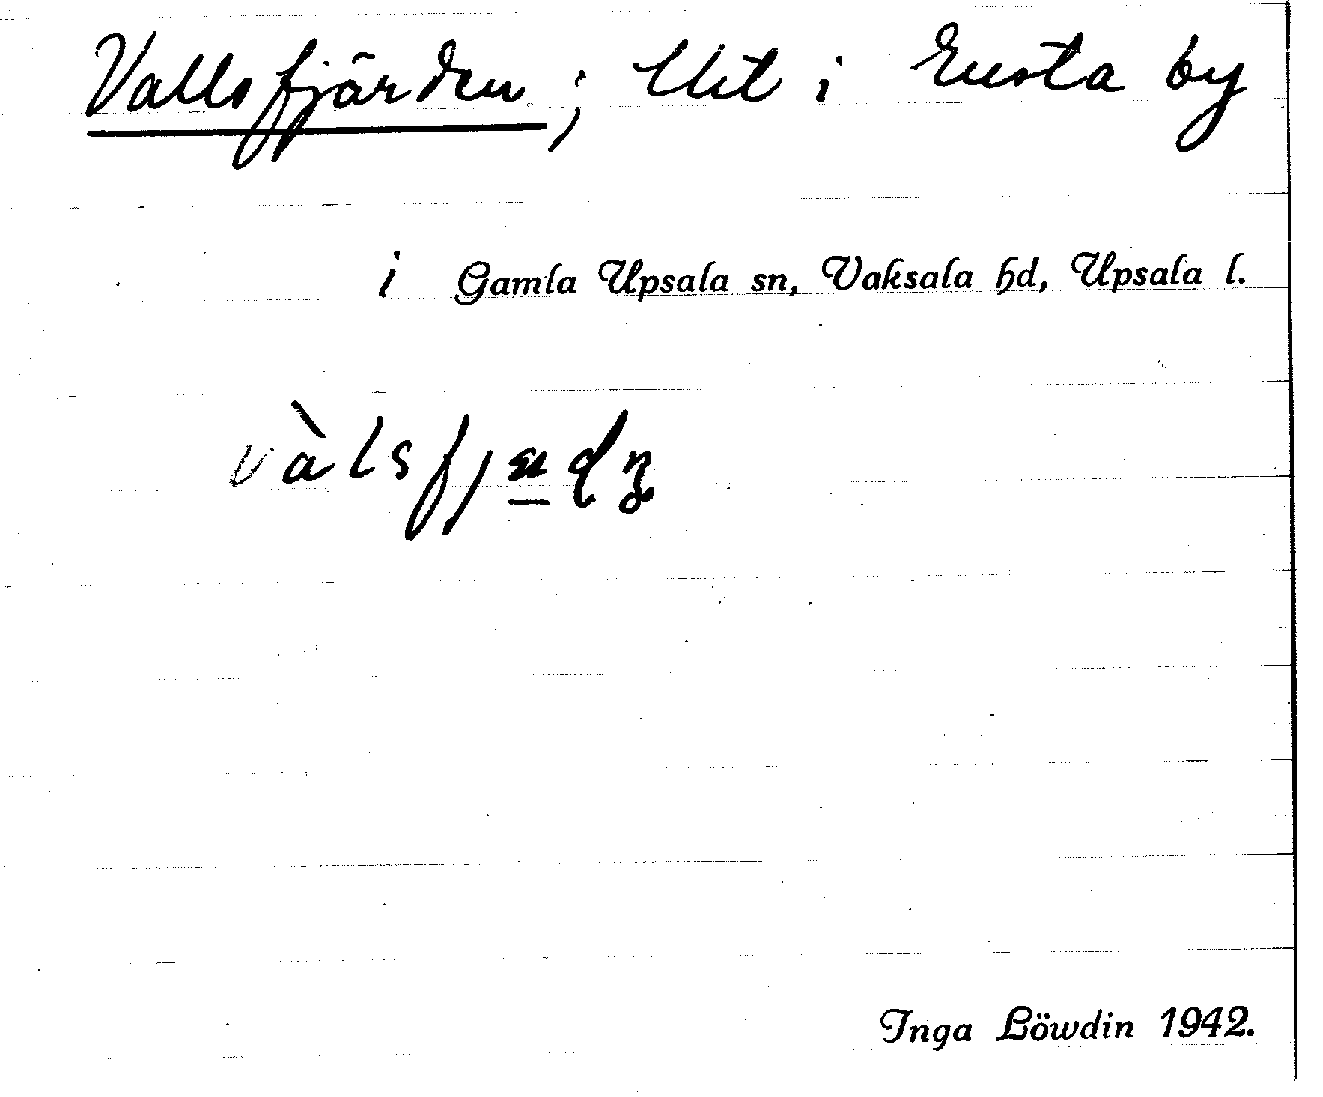 Vallsfjärden; i Ensta by
i Gamla Upsala sn, Vaksala hd, Upsala l.
Inga Löwdin 1942.